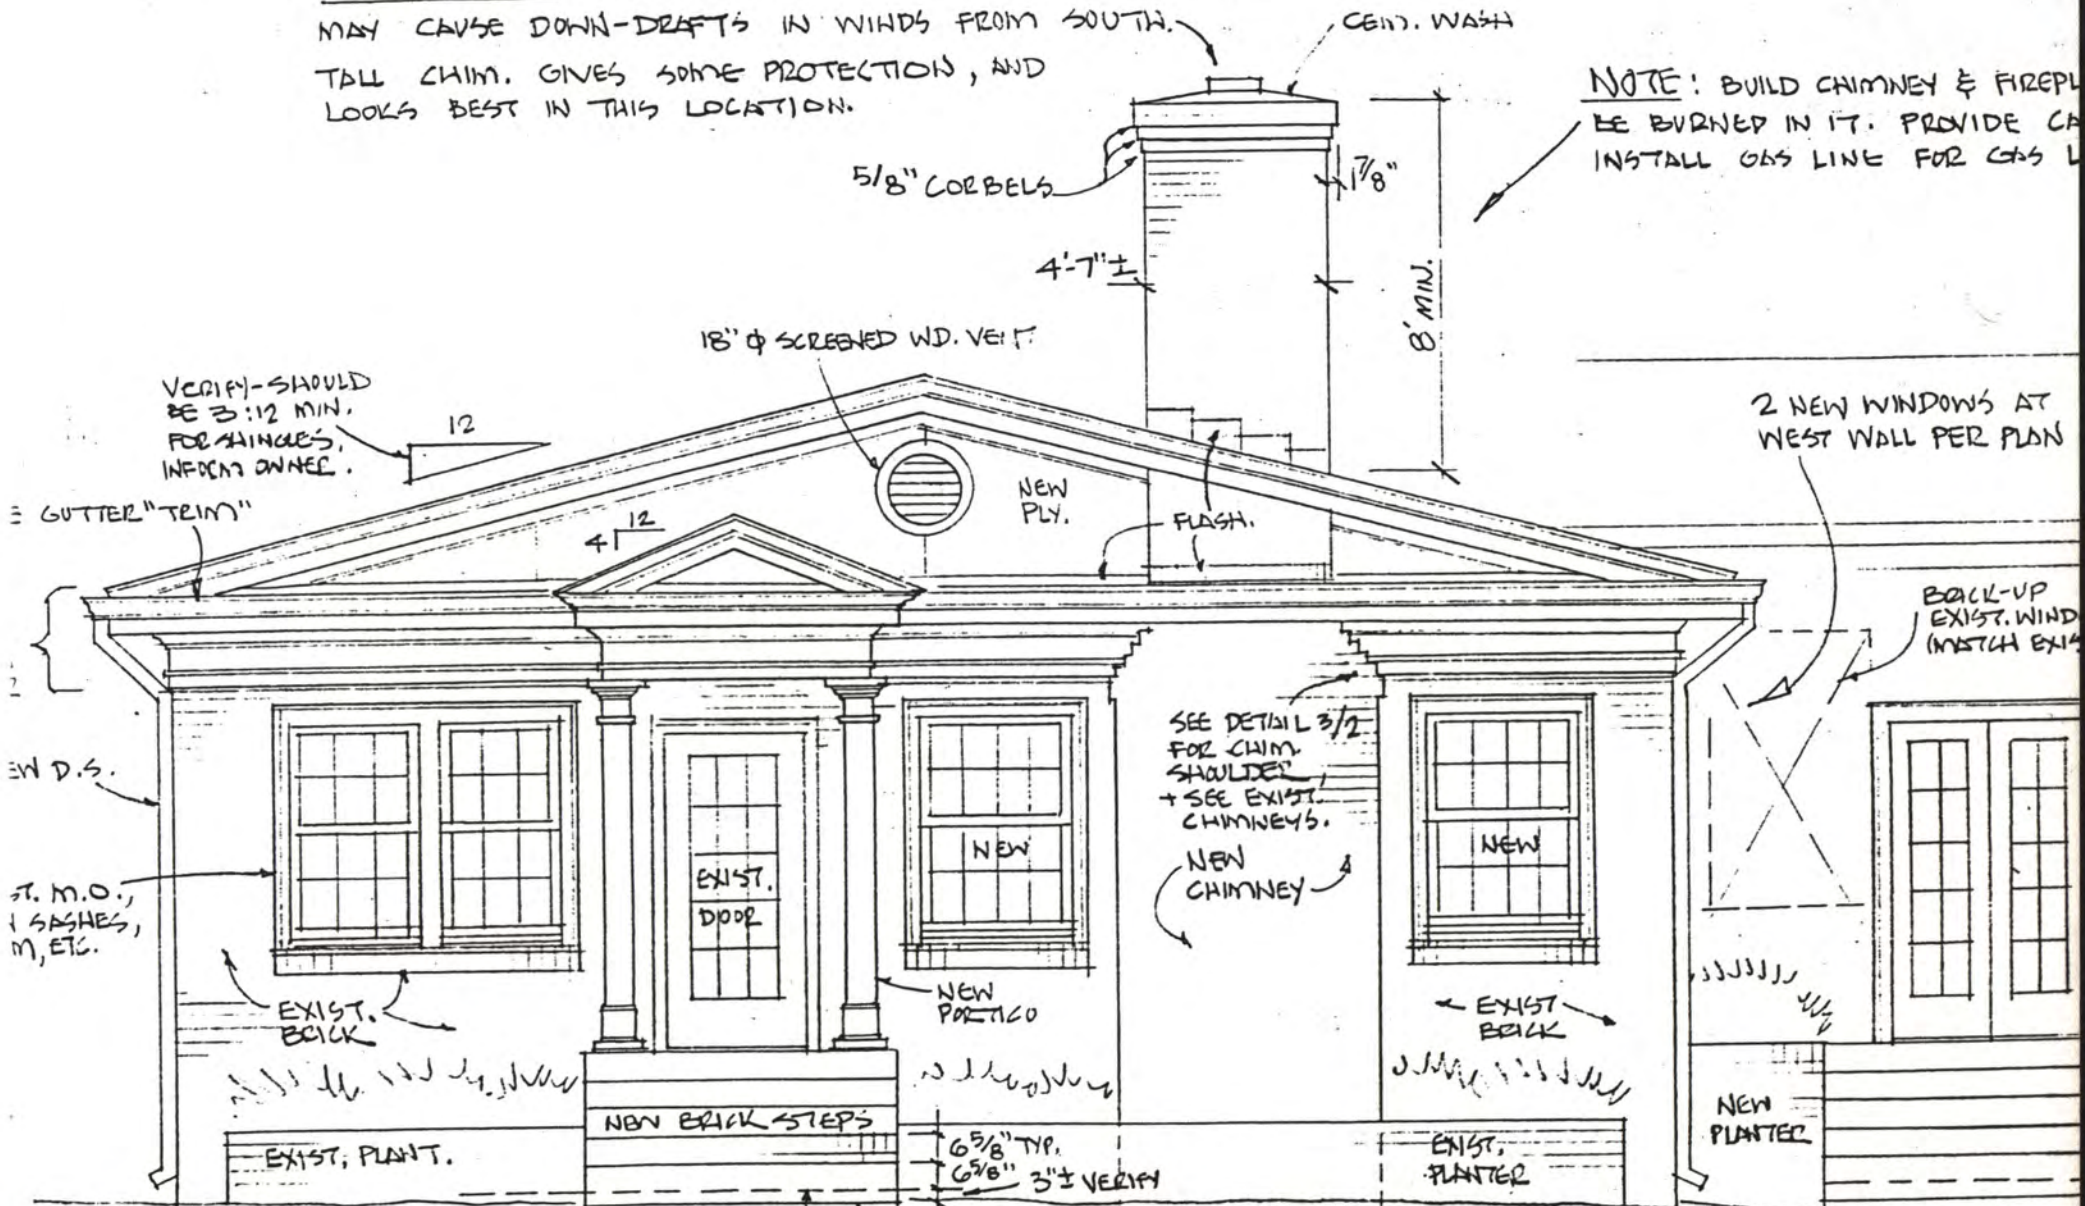 MAY CAUSE DOWN-DRAFTS IN WINDS FROM SOUTH.
TALL CHIM. GIVES SOME PROTECTION, AND
LOOKS BEST IN THIS LOCATION.
CEM. WASH
NOTE: BUILD CHIMNEY & FIREPL
BE BURNED IN IT. PROVIDE CA
INSTALL GAS LINE FOR GAS L
5/8" CORBELS
1 7/8"
4'-7" ±
8' MIN.
18" ϕ SCREENED WD. VENT
VERIFY-SHOULD
BE 3:12 MIN.
FOR SHINGLES.
INFORM OWNER.
12
2 NEW WINDOWS AT
WEST WALL PER PLAN
GUTTER "TRIM"
NEW
PLY.
FLASH.
12
4
BRICK-UP
EXIST. WIND
(MATCH EXIS
SEE DETAIL 3/2
FOR CHIM.
SHOULDER,
+ SEE EXIST.
CHIMNEYS.
EW D.S.
ST. M.O.,
SASHES,
M, ETC.
EXIST.
DOOR
NEW
NEW
CHIMNEY
NEW
EXIST.
BRICK
NEW
PORTICO
EXIST
BRICK
NEW BRICK STEPS
NEW
PLANTER
EXIST. PLANT.
6 5/8" TYP.
6 5/8"
3"± VERIFY
EXIST.
PLANTER